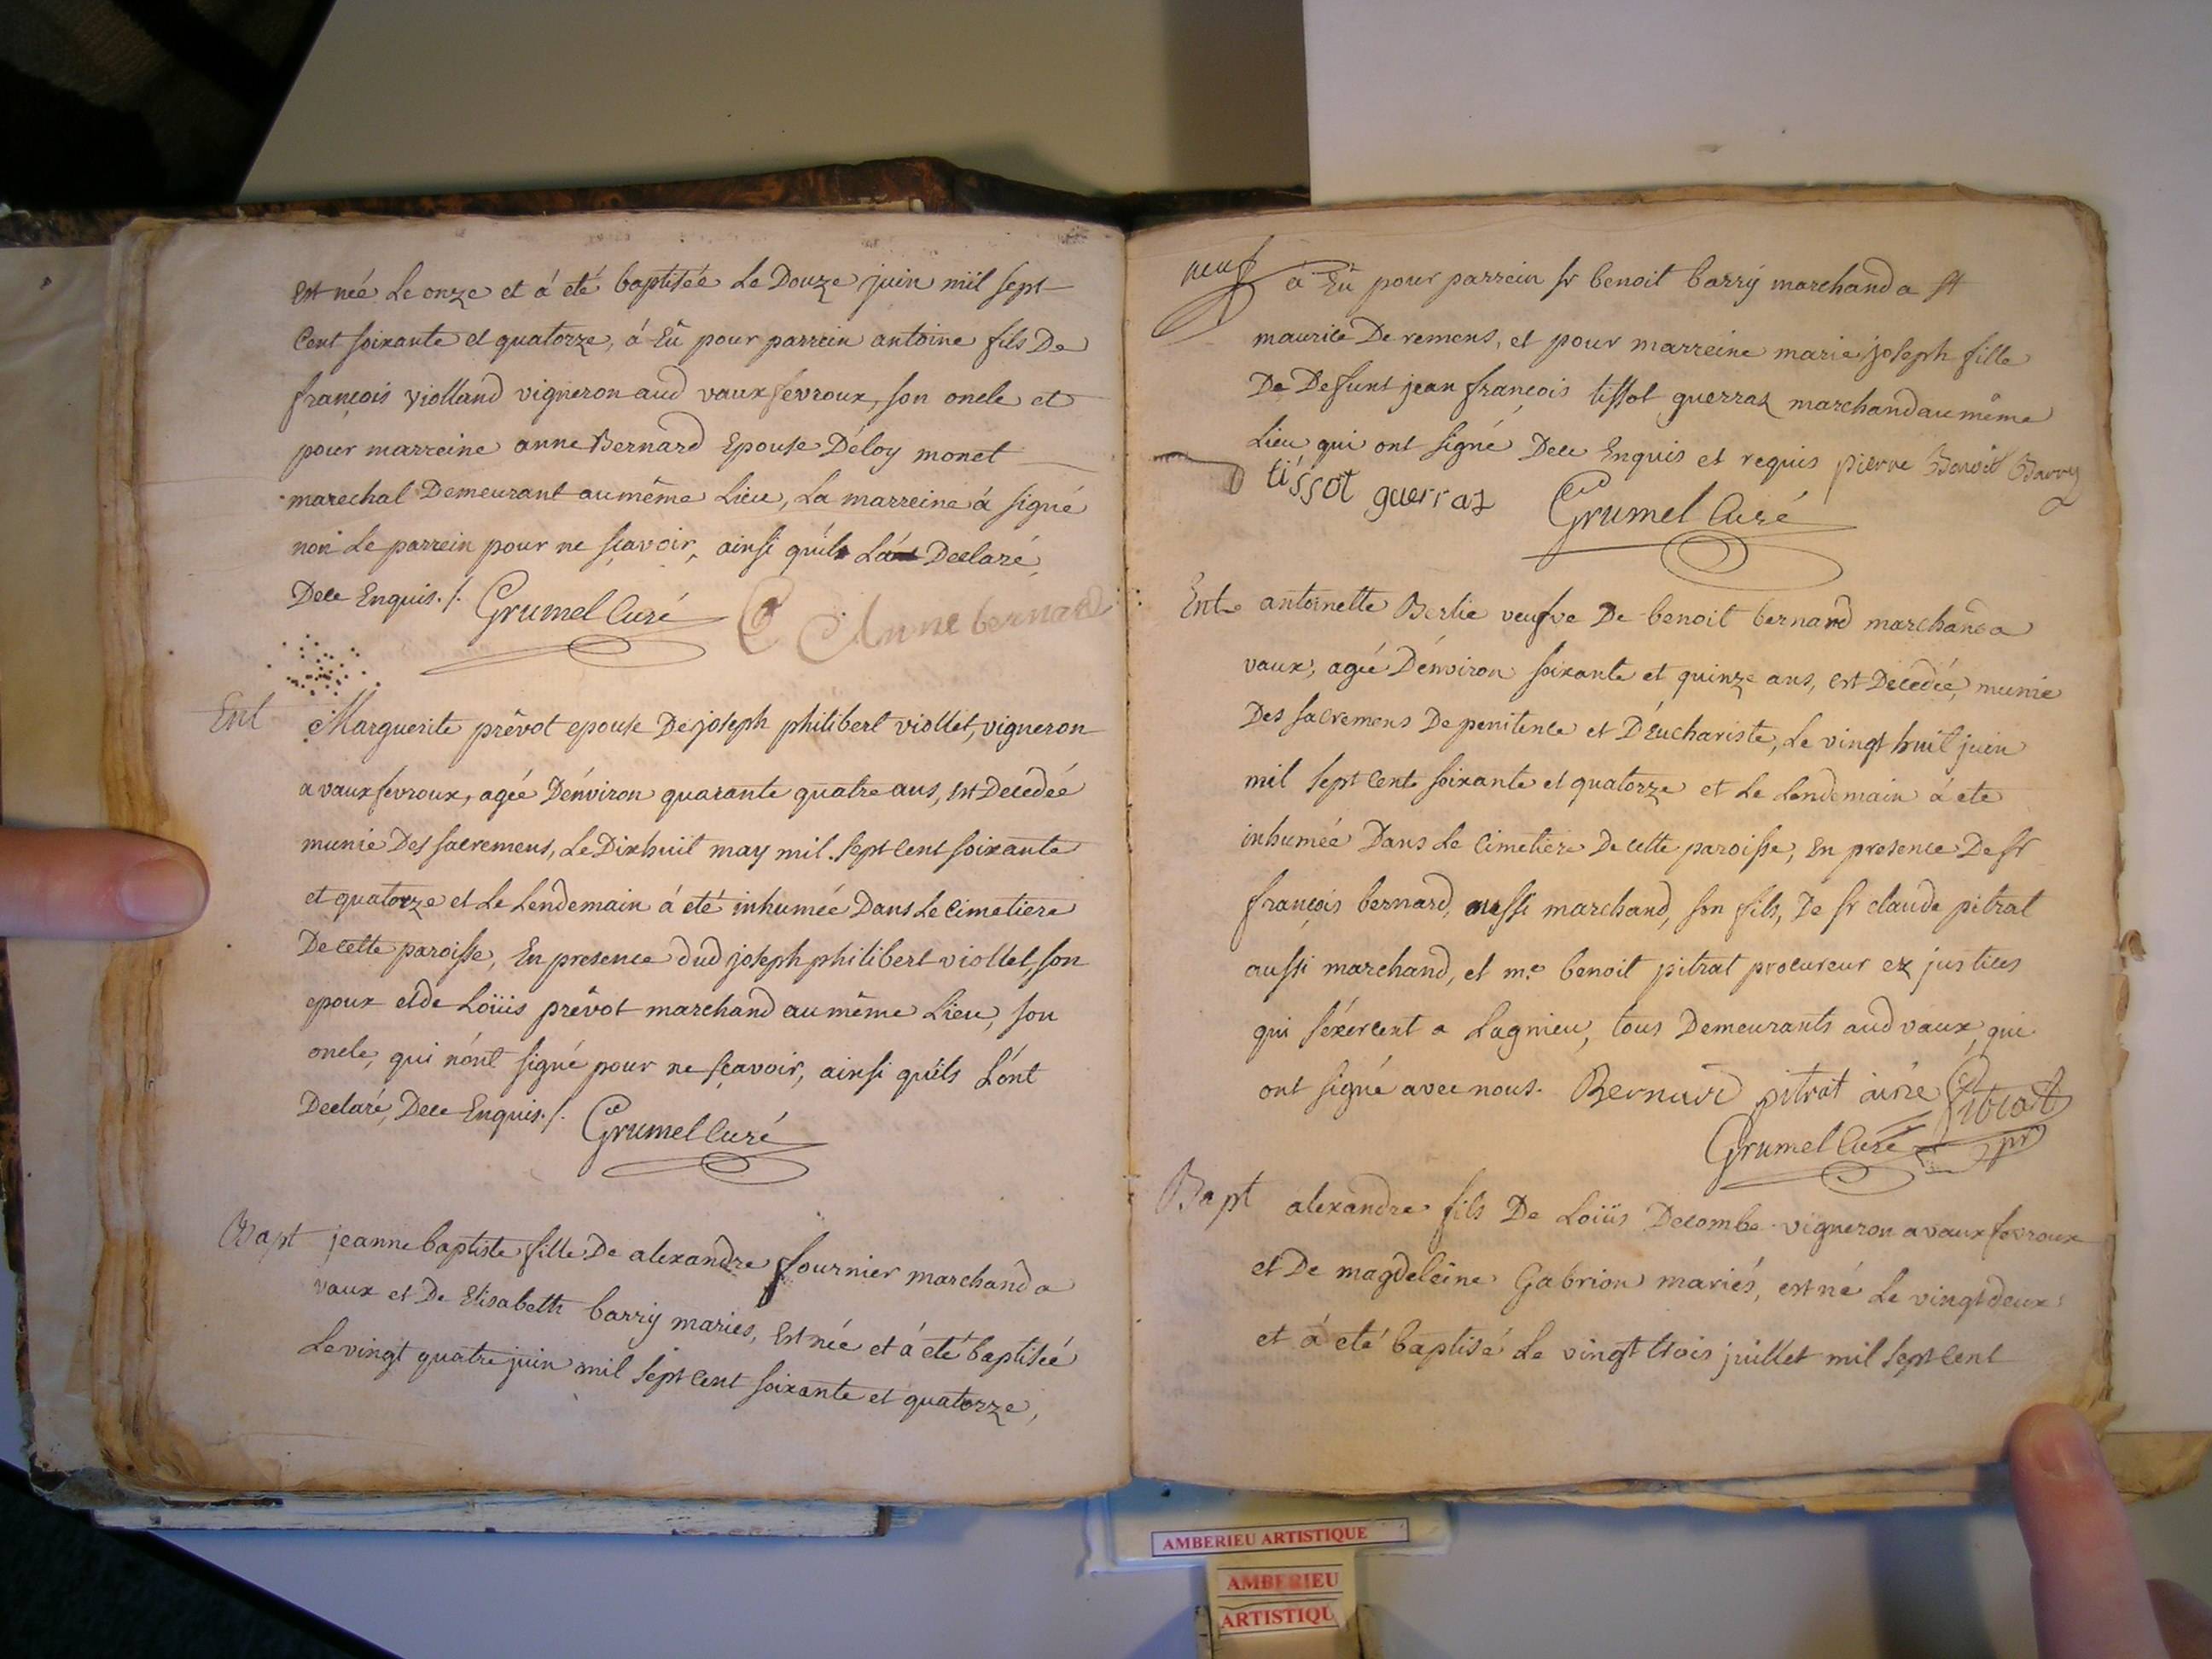 est née Le onze et á eté baptisée Le Douze juin mil sept
Cent soixante et quatorze, á Eû pour parrein antoine fils De
françois violland vigneron aud vaux fevroux, son oncle et
pour marreine anne Bernard Epouse D'éloy monet
marechal Demeurant au même Lieu, La marreine á signé
non Le parrein pour ne sçavoir, ainsi qu'il L'á Declaré,
Dece Enquis./. Grumel Curé Anne bernard
Ent Marguerite prêvot epouse De joseph philibert viollet, vigneron
a vaux fevroux, ageé D'énviron quarante quatre ans, est Decedeé
munie Des sacremens, Le Dixhuit may mil sept Cent soixante
et quatorze et Le Lendemain á eté inhumée Dans Le Cimetiere
De cette paroisse, En presence dud joseph philibert viollet, son
epoux et de Loüis prêvot marchand au même Lieu, son
oncle, qui n'ónt signé pour ne sçavoir, ainsi qu'ils L'ónt
Declaré, Dece Enquis./. Grumel Curé
Bapt jeanne baptiste fille De alexandre fournier marchand a
vaux et De Elisabeth barry mariés, Est née et á eté baptiseé
Le vingt quatre juin mil sept Cent soixante et quatorze,
neuf á Eû pour parrein sr benoit barry marchand a st
maurice De remens, et pour marreine marie joseph fille
De Defunt jean françois tissot guerraz marchand au même
Lieu qui ont signé Dece Enquis et requis pierre Benoit Barry
tissot guerraz Grumel Curé
Ent antoinette Bertie veufve De benoit bernard marchand a
vaux, ageé D'énviron soixante et quinze ans, est Decedeé, munie
Des sacremens De penitence et D'Euchariste, Le vingt huit juin
mil sept Cent soixante et quatorze et Le Lendemain á eté
inhumée Dans Le Cimetiere De cette paroisse, En presence De sr
françois bernard, aussi marchand, son fils, De sr claude pitrat
aussi marchand, et m.e benoit pitrat procureur ez justices
qui s'éxercent a Lagnieu, tous Demeurants aud vaux, qui
ont signé avec nous. Bernard pitrat ainé Pitrat
Grumel Curé pr
Bapt alexandre fils De Loüis Decombe vigneron a vaux fevroux
et De magdeleine Gabrion mariés, est né Le vingt deux
et á eté baptisé Le vingt trois juillet mil sept cent
AMBERIEU ARTISTIQUE
AMBERIEU
ARTISTIQU